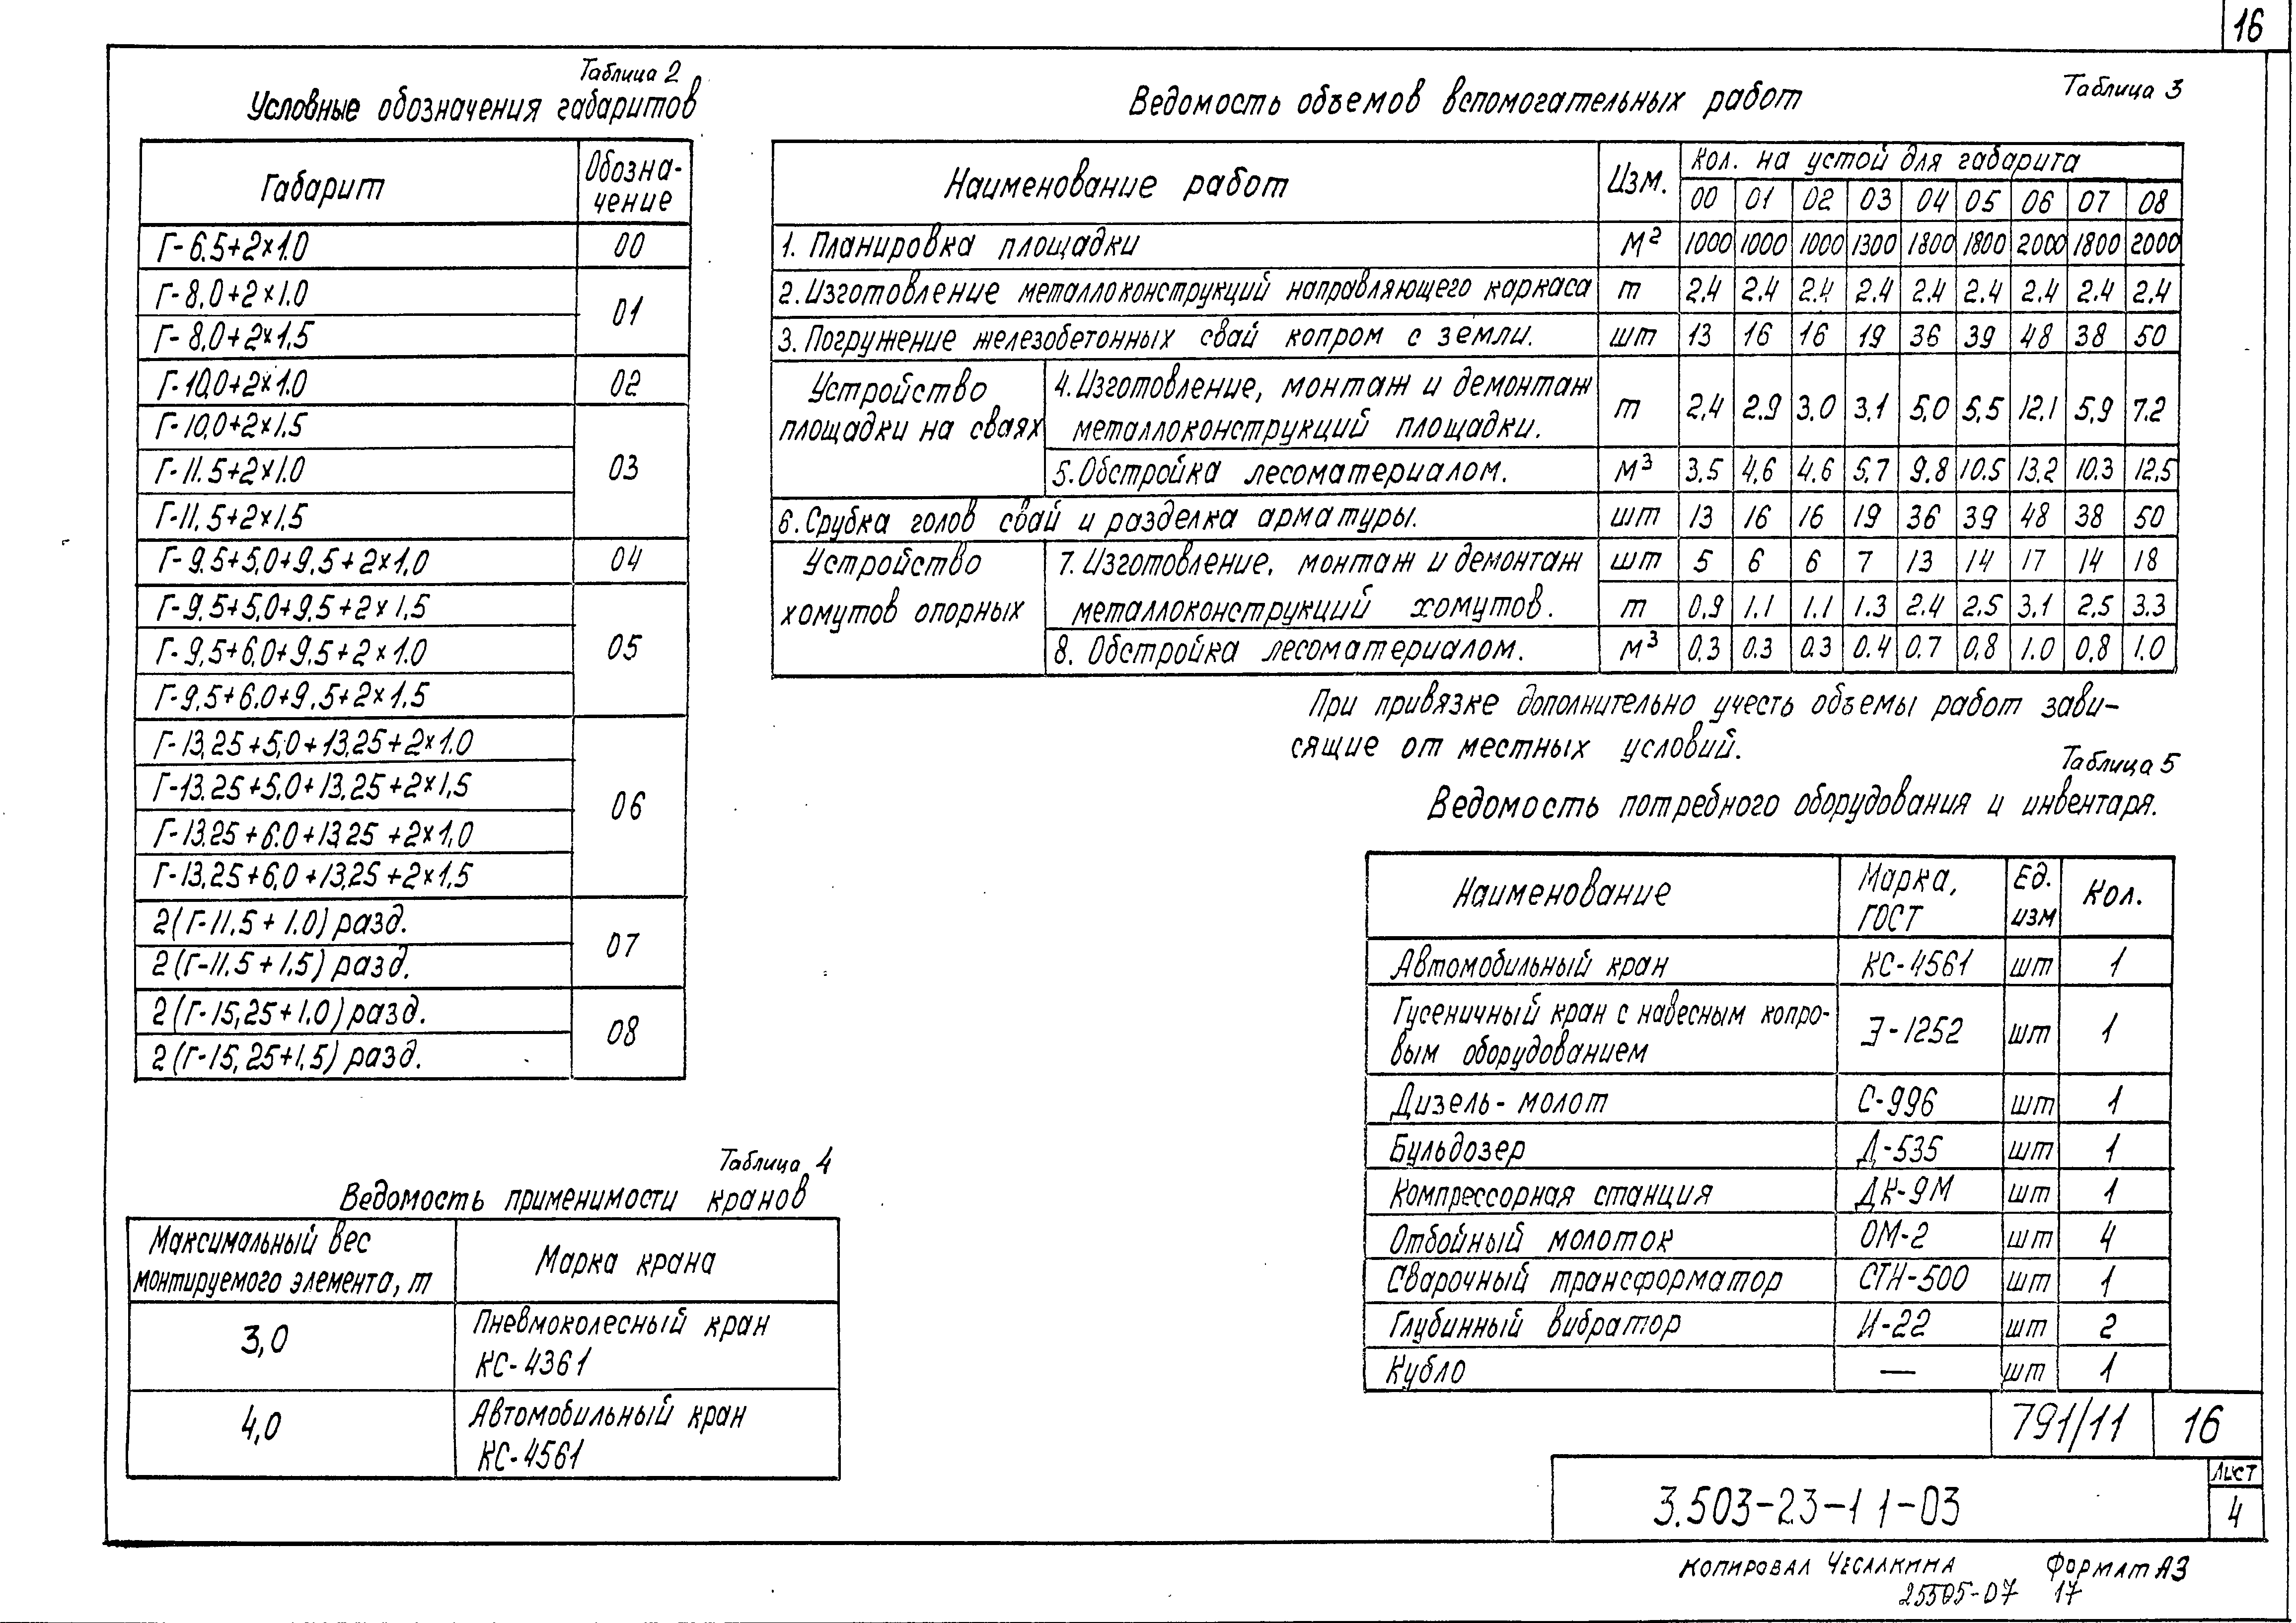 16
Таблица 2
Условные обозначения габаритов
Габарит
Обозна-
чение
Г-6.5+2×1.0
00
Г-8,0+2×1.0
Г-8,0+2×1,5
01
Г-10,0+2×1.0
02
Г-10,0+2×1,5
Г-11.5+2×1.0
Г-11,5+2×1,5
03
Г-9.5+5,0+9,5+2×1,0
04
Г-9,5+5,0+9,5+2×1,5
Г-9,5+6,0+9,5+2×1.0
Г-9,5+6.0+9,5+2×1,5
05
Г-13,25+5,0+13,25+2×1.0
Г-13.25+5,0+13,25+2×1,5
Г-13.25+6.0+13,25+2×1,0
Г-13,25+6,0+13,25+2×1,5
06
2(Г-11,5+1.0) разд.
2(Г-11.5+1.5) разд.
07
2(Г-15,25+1.0) разд.
2(Г-15,25+1,5) разд.
08
Таблица 3
Ведомость объемов вспомогательных работ
Наименование работ
Изм.
Кол. на устой для габарита
00 01 02 03 04 05 06 07 08
1. Планировка площадки м2 1000 1000 1000 1300 1800 1800 2000 1800 2000
2. Изготовление металлоконструкций направляющего каркаса т 2.4 2.4 2.4 2.4 2.4 2.4 2.4 2.4 2.4
3. Погружение железобетонных свай копром с земли. шт 13 16 16 19 36 39 48 38 50
Устройство
площадки на сваях
4. Изготовление, монтаж и демонтаж
металлоконструкций площадки.
т 2,4 2.9 3.0 3,1 5,0 5,5 12,1 5,9 7.2
5. Обстройка лесоматериалом. м3 3.5 4,6 4.6 5,7 9.8 10.5 13.2 10.3 12,5
6. Срубка голов свай и разделка арматуры. шт 13 16 16 19 36 39 48 38 50
Устройство
хомутов опорных
7. Изготовление, монтаж и демонтаж
металлоконструкций хомутов.
шт 5 6 6 7 13 14 17 14 18
т 0,9 1.1 1.1 1.3 2.4 2.5 3,1 2,5 3.3
8. Обстройка лесоматериалом. м3 0,3 0.3 0.3 0.4 0,7 0,8 1.0 0,8 1,0
При привязке дополнительно учесть объемы работ зави-
сящие от местных условий.
Таблица 5
Ведомость потребного оборудования и инвентаря.
Наименование
Марка,
ГОСТ
Ед.
изм
Кол.
Автомобильный кран КС-4561 шт 1
Гусеничный кран с навесным копро-
вым оборудованием
Э-1252 шт 1
Дизель-молот С-996 шт 1
Бульдозер Д-535 шт 1
Компрессорная станция ДК-9М шт 1
Отбойный молоток ОМ-2 шт 4
Сварочный трансформатор СТН-500 шт 1
Глубинный вибратор И-22 шт 2
Кубло — шт 1
Таблица 4
Ведомость применимости кранов
Максимальный вес
монтируемого элемента, т
Марка крана
3,0
Пневмоколесный кран
КС-4361
4,0
Автомобильный кран
КС-4561
791/11 16
3.503-23-11-03
Лист
4
Копировал Чесалкина Формат А3
25505-07 17